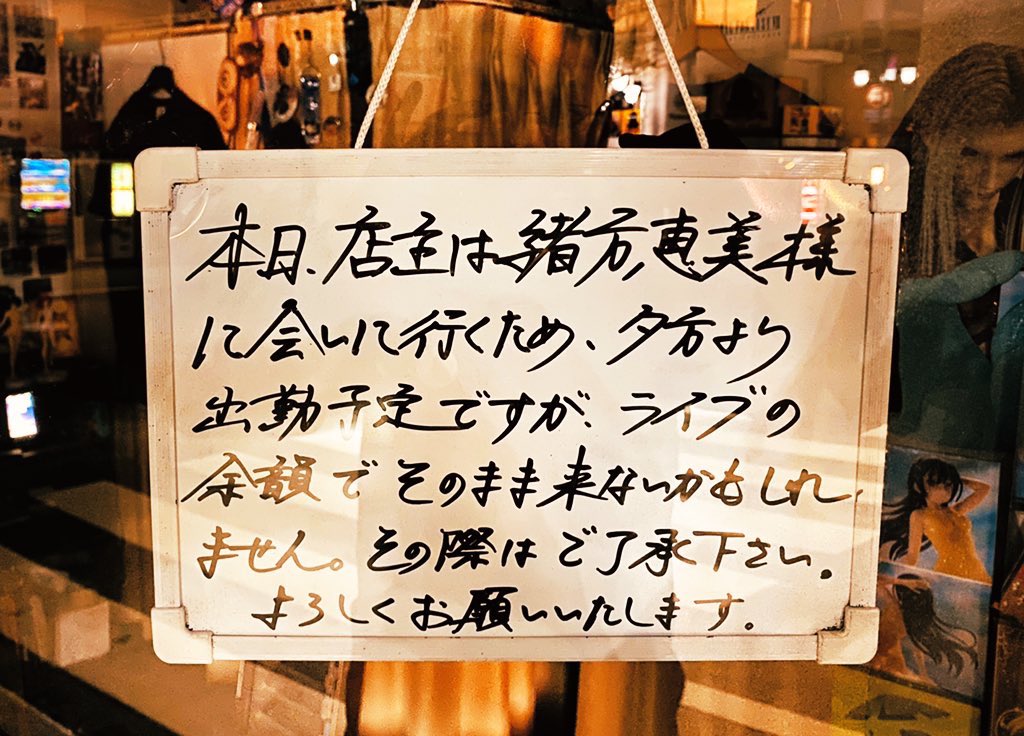 本日、店主は緒方恵美様
に会いに行くため、夕方より
出勤予定ですが、ライブの
余韻でそのまま来ないかもしれ
ません。その際はご了承下さい。
よろしくお願いいたします。